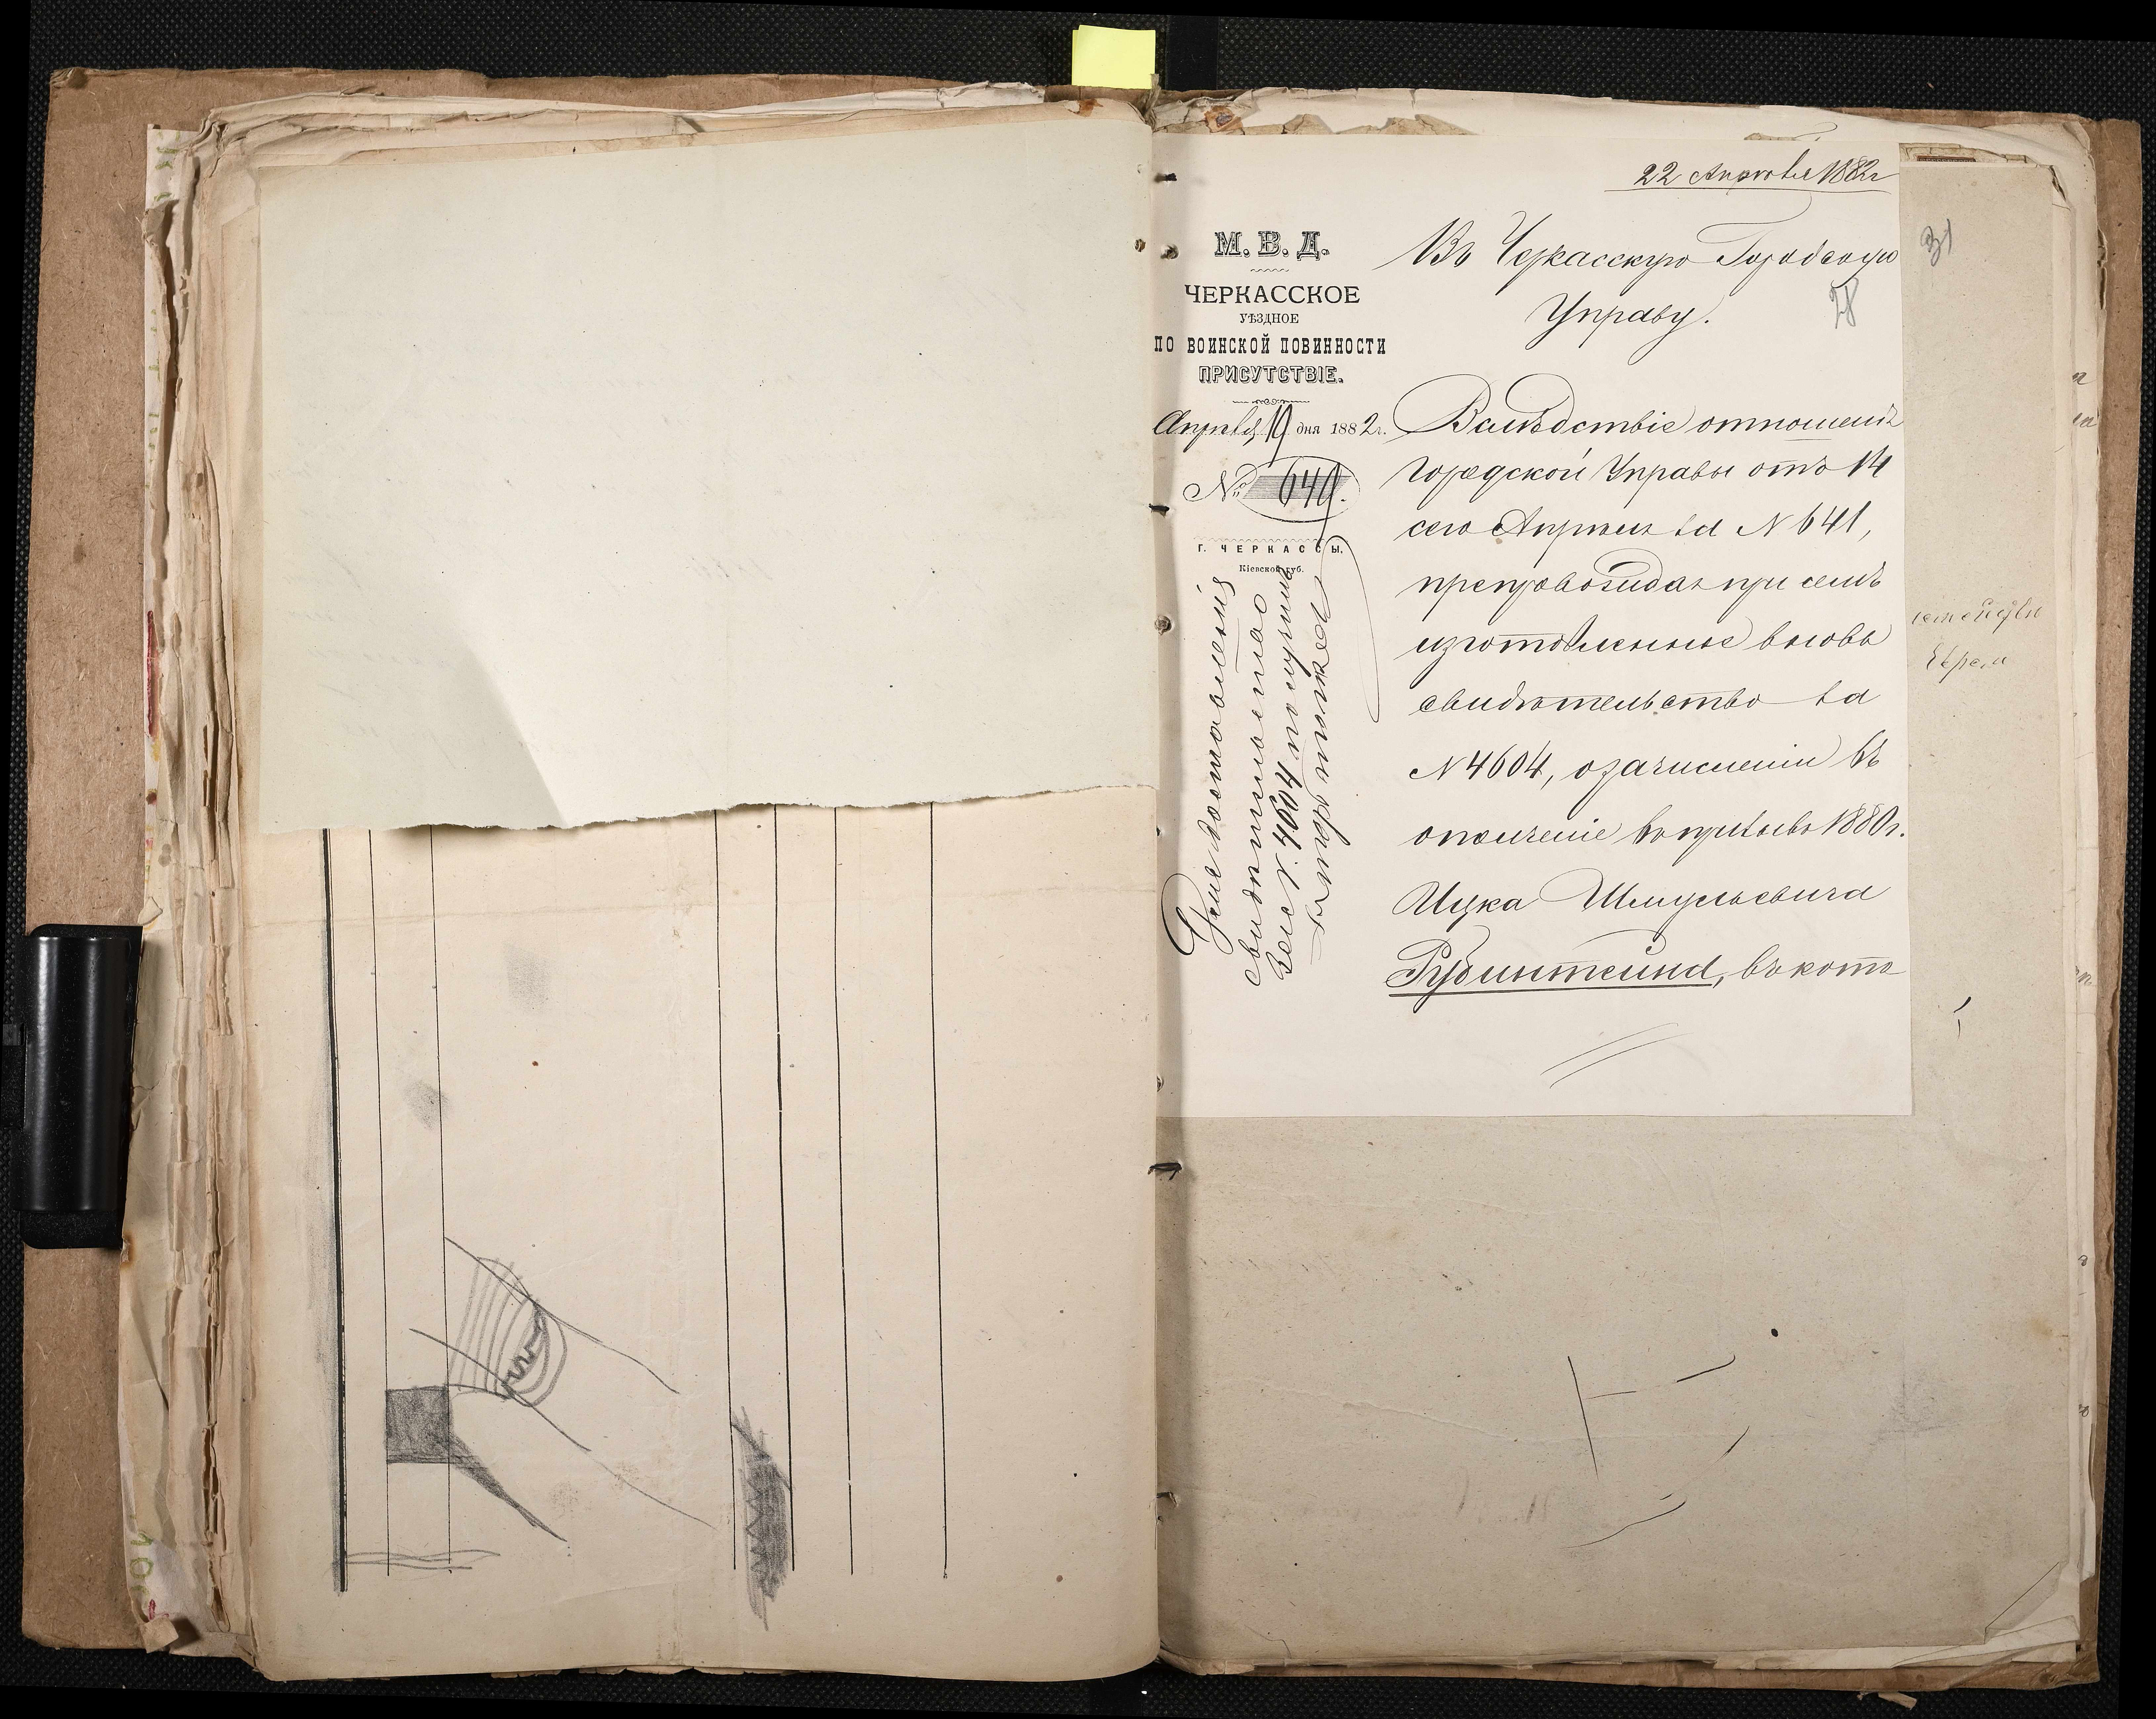 22 Апреля 1882 г
31
М. В. Д.
ЧЕРКАССКОЕ
УѢЗДНОЕ
ПО ВОИНСКОЙ ПОВИННОСТИ
ПРИСУТСТВІЕ.
Апрѣля 19 дня 1882 г.
№ 640.
Г. ЧЕРКАССЫ.
Кіевской губ.
Въ Черкасскую Городскую
Управу.
28
Вслѣдствіе отношенія
Городской Управы отъ 14
сего Апрѣля за N 641,
препровождая при семъ
изготовленное вновь
свидѣтельство за
N 4604, о зачисленіи въ
ополченіе въ призывъ 1880 г.
Ицка Шмулевича
Рубинштейна, въ кото
свидѣтельство
N. 4604 получилъ